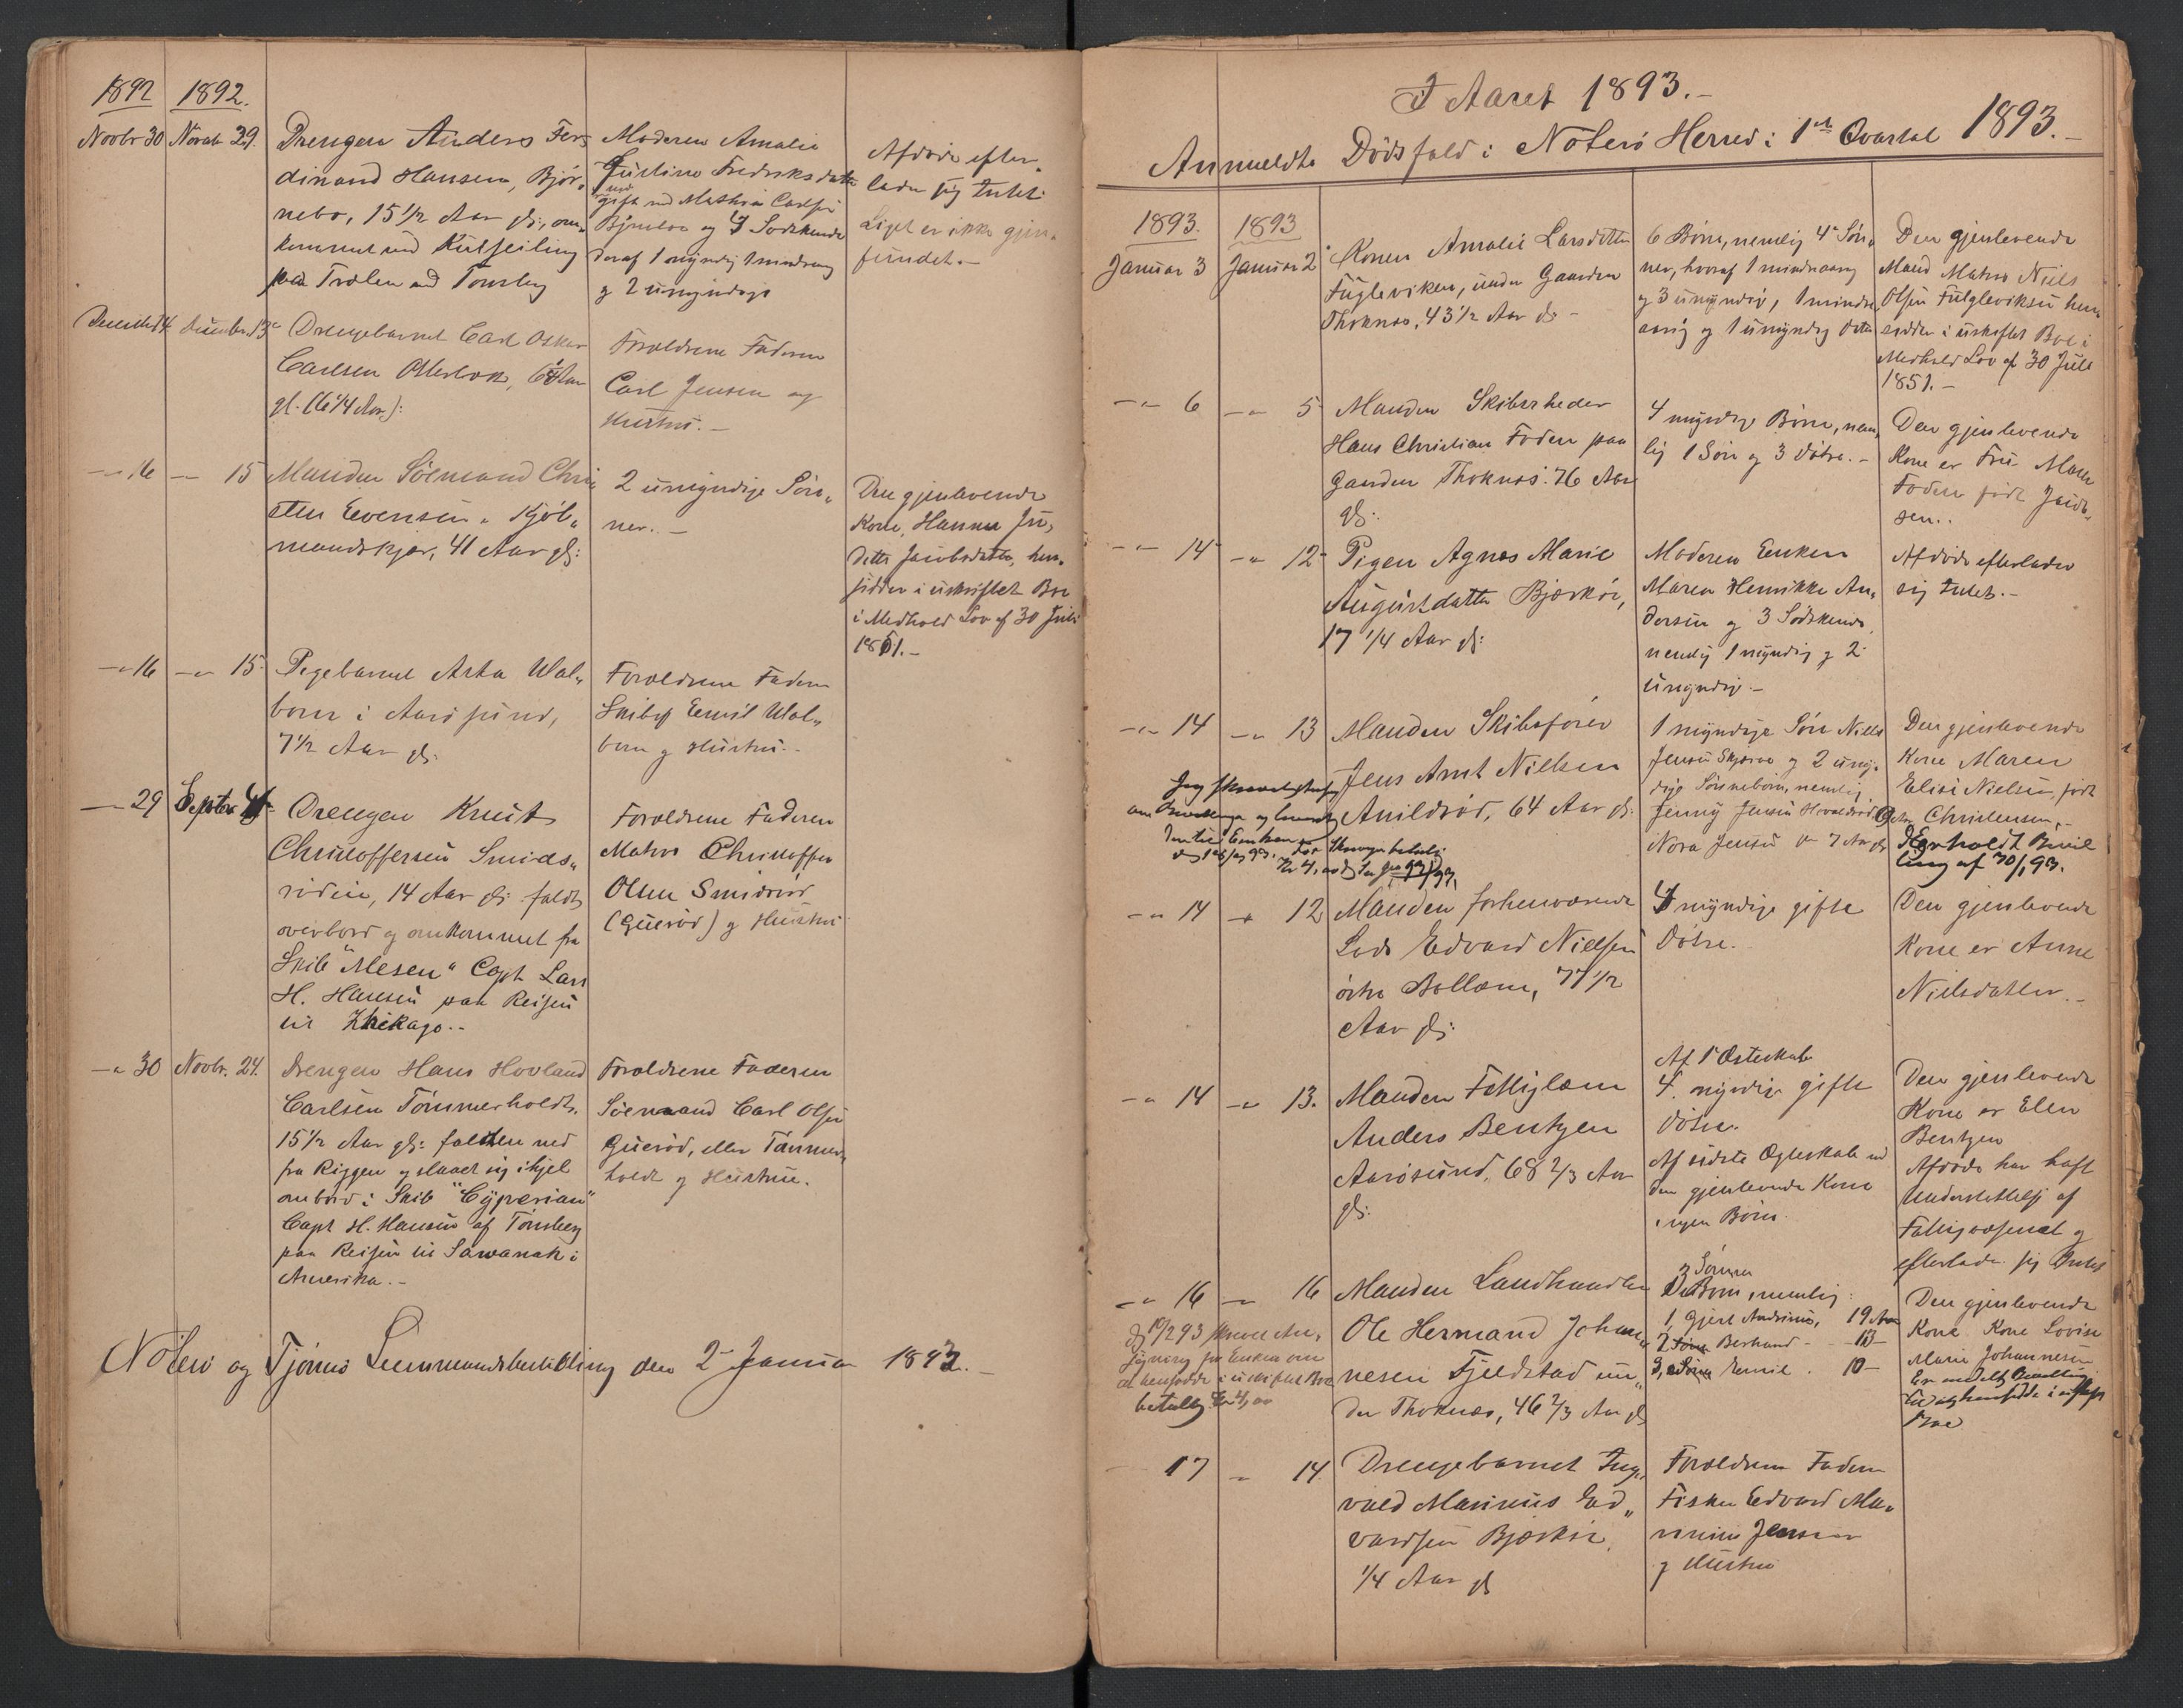 1892 1892.
Novbr 30 Novbr 29. Drengen Anders Fer-
dinand Hansen, Bjør-
nebo, 15 1/2 Aar gl:, om-
kommet ved Kulseiling
paa Træla ved Tønsberg
Moderen Amalie
Justine Fredriksdatter
gift med Mathias Carlsen
Bjørnebo og 4 Sødskende
deraf 1 myndig 1 mindreaarig
og 2 umyndige
Afdøde efter-
lader sig Intet
Liget er ikke gjen-
fundet.-
December 14 Decembr. 13 Drengebarnet Carl Oskar
Carlsen Ollerbæk, 6 1/4 Aar
gl. (6 1/4 Aar):
Forældrene Faderen
Carl Jensen og
Hustru.-
-"- 16 -"- 15 Manden Sømand Chri-
sten Evensen, Kjøb-
mandskjær, 41 Aar gl:
2 umyndige Søn-
ner.-
Den gjenlevende
Kone, Hanna Ju-
ditte Jacobsdatter, hen-
sidder i uskiftet Bo
i Medhold Lov af 30 Juli
1851.-
-"- 16 -"- 15. Pigebarnet Asta Wal-
born i Aarøsund,
7 1/2 Aar gl:
Forældrene Faderen
Skibsf Emil Wal-
born og Hustru.-
-"- 29 Septbr 4 Drengen Knut
Christoffersen Smids-
rødin, 14 Aar gl: faldt
overbord og omkommet fra
Skib "Alesen" Capt Lars
H. Hansen paa Reisen
til Zhikago.-
Forældrene Faderen
Matros Christoffer
Olsen Smidsrød
(Guerød) og Hustru
-"- 30 Novbr. 24. Drengen Hans Hovland
Carlsen Tømmerholdt,
15 1/2 Aar gl: falden ned
fra Riggen og slaaet sig ihjel
ombord i Skib "Cyperian"
Capt H. Hansen af Tønsberg
paa Reisen til Sawanah i
Amerika.-
Forældrene Faderen
Sømand Carl Olsen
Guerød, eller Tømmer-
holdt og Hustru.
Nøterø og Tjømø Lensmandsbestilling den 2 Januar 1893.
I Aaret 1893.-
Anmeldte Dødsfald i Nøterø Herred i 1ste Qvartal 1893.-
1893. 1893
Januar 3 Januar 2 Konen Amalie Larsdatter
Fugleviken, under Gaarden
Thoknæs, 43 1/2 Aar gl.-
6 Børn, nemlig 4 Søn-
ner, hvoraf 1 mindreaarig
og 3 umyndig, 1 mindre-
aarig og 1 umyndig Datter
Den gjenlevende
Mand Matros Niels
Olsen Fugleviken hen-
sidder i uskiftet Bo i
Medhold Lov af 30 Juli
1851.-
-"- 6 -"- 5 Manden Skibsrheder
Hans Christian Foden paa
Gaarden Thoknæs. 76 Aar
gl:.
4 myndige Børn, nem-
lig 1 Søn og 3 Døtre.-
Den gjenlevende
Kone er Fru Maren
Foden født
-"- 14 -"- 12 Pigen Agnes Marie
Augustdatter Bjerkø,
17 1/4 Aar gl:
Moderen Enken
Maren Henrikke An-
dersen og 3 Sødskende,
nemlig 1 myndig og 2
umyndig.-
Afdøde efterlader
sig Intet.-
-"- 14 -"- 13 Manden Skibsfører
Jens Arnt Nielsen
Arildsrød, 64 Aar gl:
1 myndige Søn Niels
Jensen Skjærsø og 2 umyn-
dige Sønnebørn, nemlig
Jenny Jensen
Nora Jensen 7 Aar gl
Den gjenlevende
Kone Maren
Elise Nielsen, født
Christensen,-
Erholdt Bevil
ling af 30/1 93.
-"- 14 -"- 12 Manden forhenværende
Lods Edvard Nielsen
østre Bollæren, 77 1/2
Aar gl:
4 myndige gifte
Døtre.
Den gjenlevende
Kone er Anne
Nielsdatter.-
-"- 14 -"- 13. Manden Fattiglem
Anders Bentzen
Aarøsund, 68 2/3 Aar
gl:
Af 1ste Egteskab
4. myndige gifte
Døtre.
Af sidste Egteskab med
den gjenlevende Kone
ingen Børn.
Den gjenlevende
Kone er Elen
Bentzen
Afdøde har haft
Understøttelse af
Fattigvæsenet og
efterlader sig Intet
-"- 16 -"- 16 Manden Landhandler
Ole Hermand Johan-
nesen Fjeldstad un-
der Thoknæs, 46 2/3 Aar gl
3 Sønner
Børn, nemlig:
1, Gjert Andreas, 19 Aar
2 Bernhard - 13 -
3, Emil . 10 -
Den gjenlevende
Kone Kone Lovise
Marie Johannesen
17 -"- 14 Drengebarnet Ing-
vald Marinius Ed-
vardsen Bjerkø,
1/4 Aar gl
Forældrene Faderen
Fisker Edvard Ma-
rinius Jensen
og Hustru